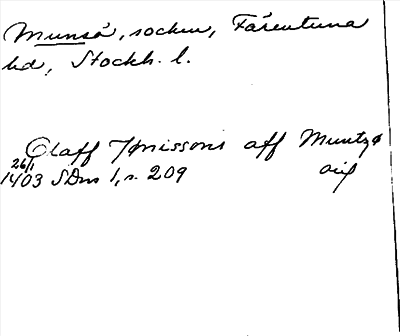 Munsö, socken, Färentuna
hd, Stockh. l.
Olaff Jønissons aff Muntzø
26/1
1403 SDns 1, s. 209 orig